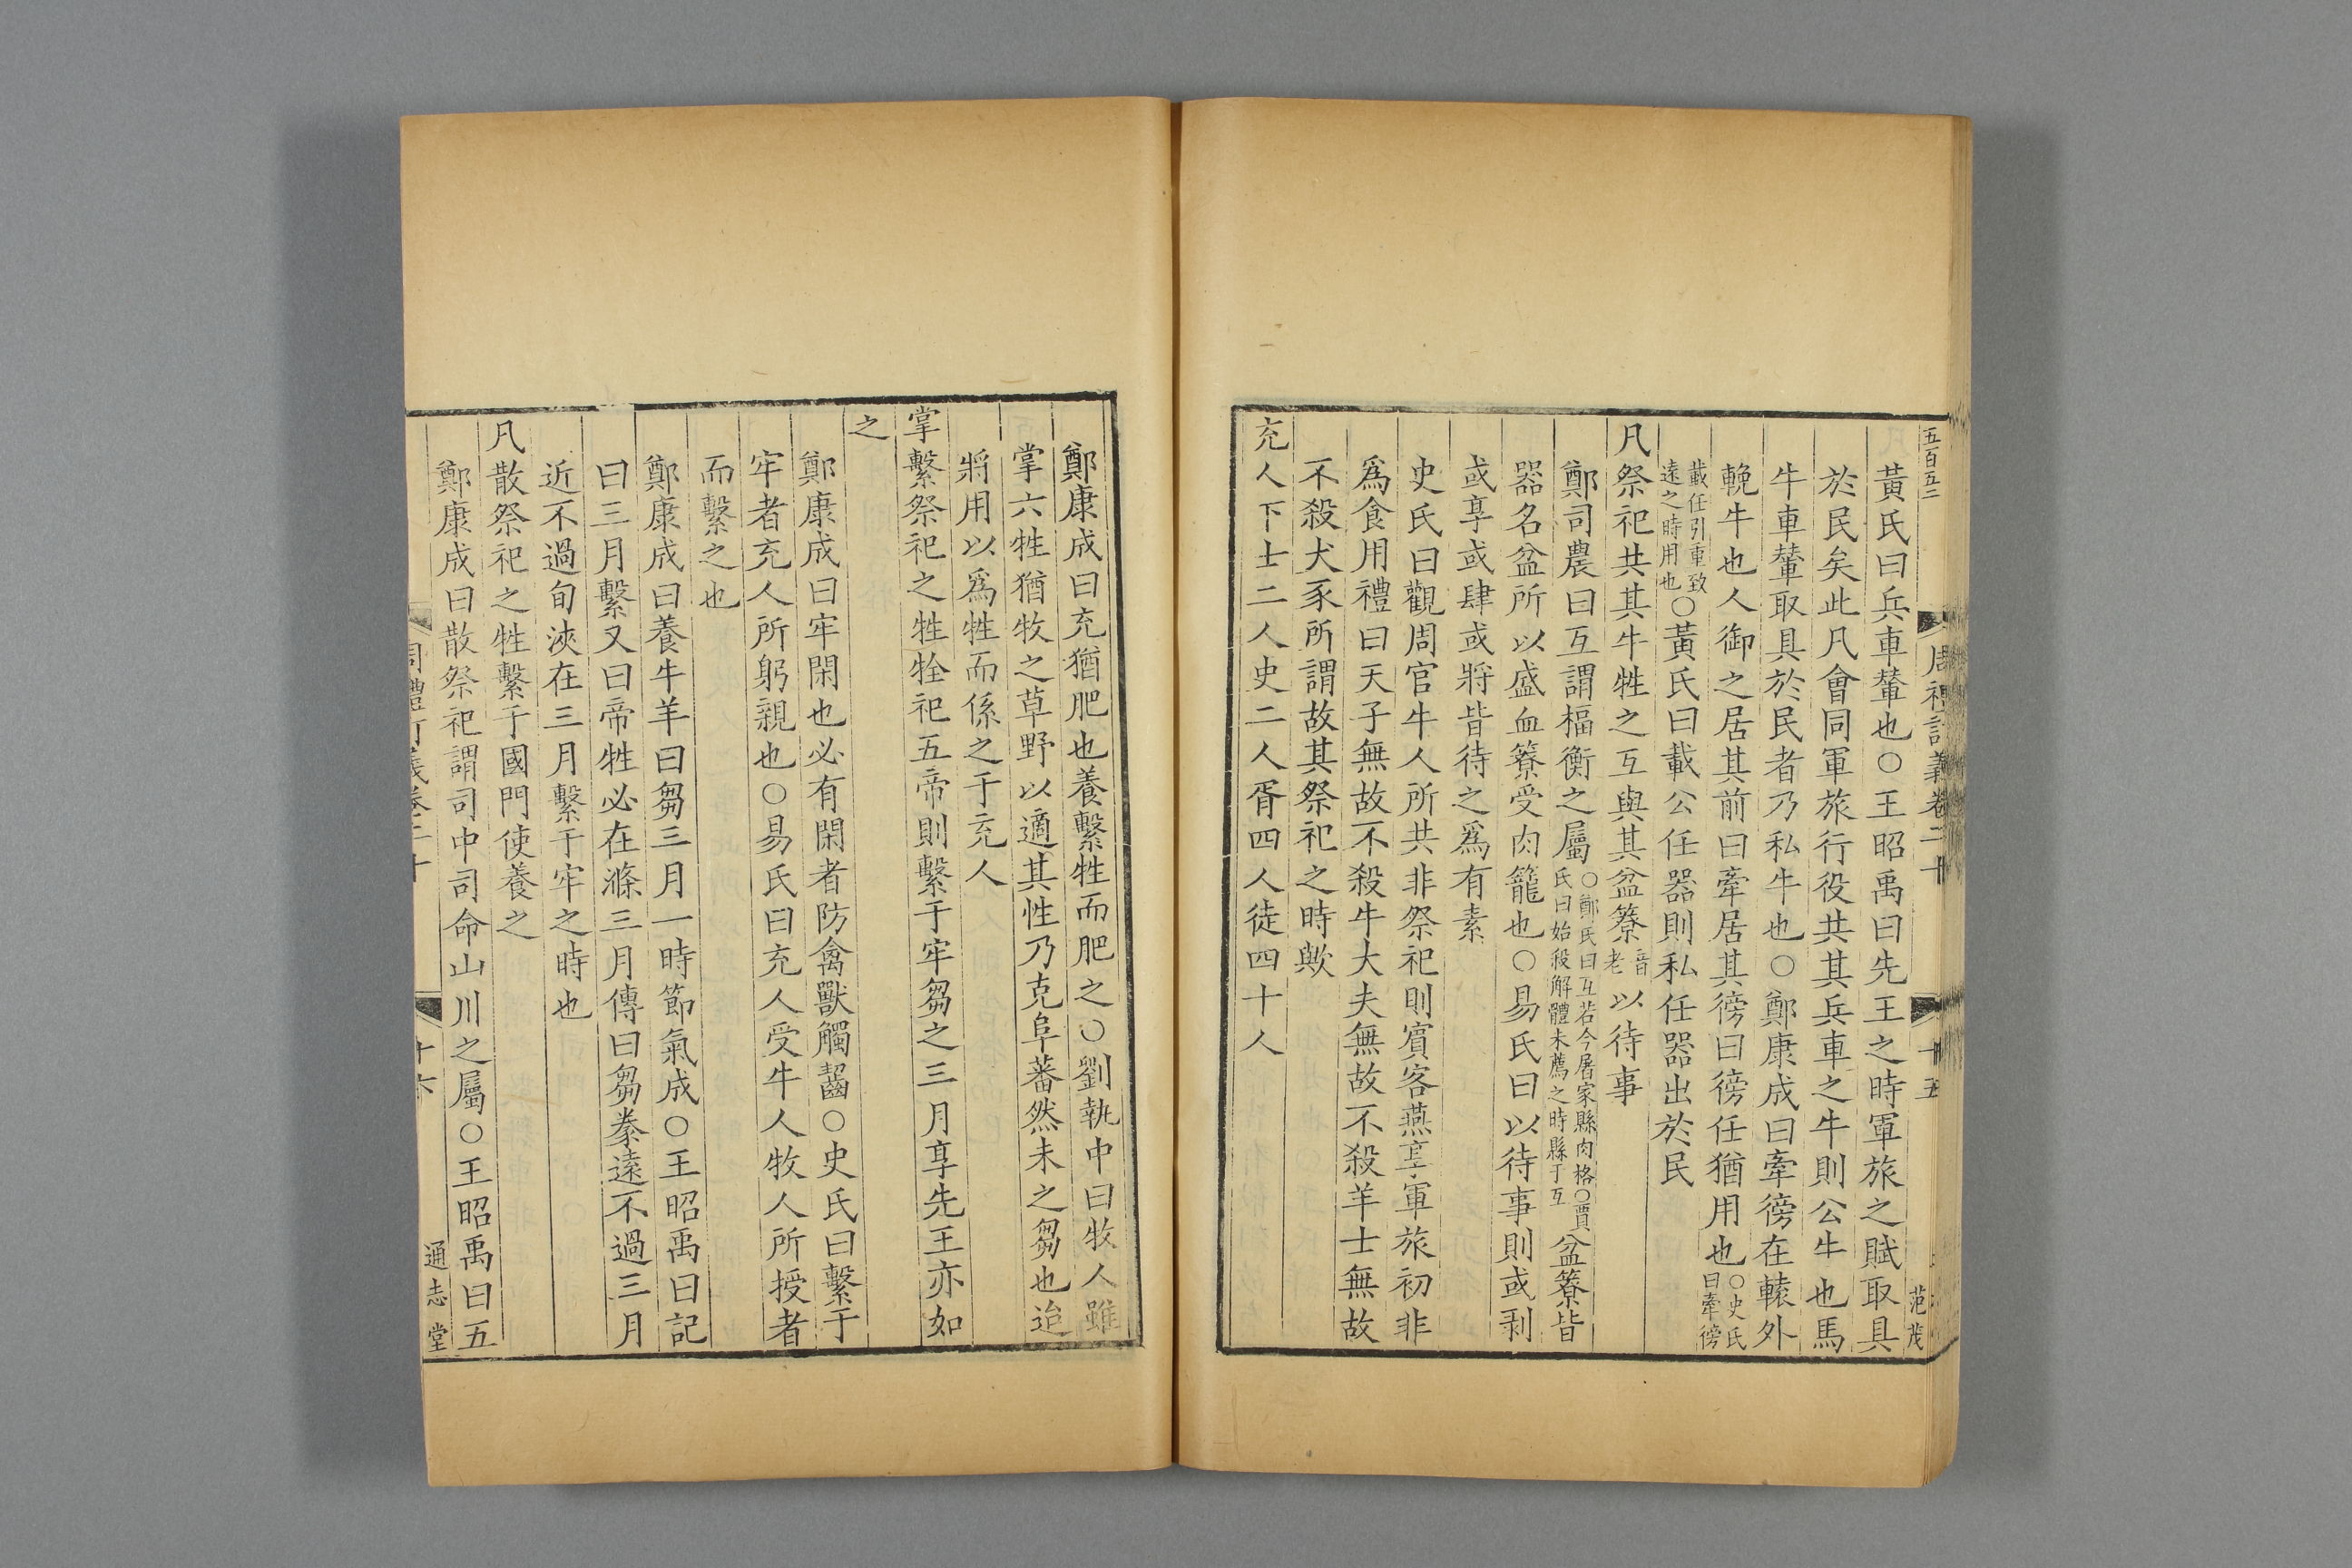 五百五二
周禮訂義卷二十
十五
范茂
黃氏曰兵車輦也○王昭禹曰先王之時軍旅之賦取具
於民矣此凡會同軍旅行役共其兵車之牛則公牛也馬
牛車輦取具於民者乃私牛也○鄭康成曰牽徬在轅外
輓牛也人御之居其前曰牽居其徬曰徬任猶用也○史氏曰牽徬
載任引重致遠之時用也○黃氏曰載公任器則私任器出於民
凡祭祀共其牛牲之互與其盆簝音老以待事
鄭司農曰互謂楅衡之屬○鄭氏曰互若今屠家縣肉格○賈氏曰始殺解體未薦之時縣于互盆簝皆
器名盆所以盛血簝受肉籠也○易氏曰以待事則或剥
或享或肆或將皆待之爲有素
史氏曰觀周官牛人所共非祭祀則賓客燕享軍旅初非
爲食用禮曰天子無故不殺牛大夫無故不殺羊士無故
不殺犬豕所謂故其祭祀之時歟
充人下士二人史二人胥四人徒四十人
鄭康成曰充猶肥也養繫牲而肥之○劉執中曰牧人雖
掌六牲猶牧之草野以適其性乃克阜蕃然未之芻也迨
將用以爲牲而係之于充人
掌繫祭祀之牲牷祀五帝則繫于牢芻之三月享先王亦如
之
鄭康成曰牢閑也必有閑者防禽獸觸齧○史氏曰繫于
牢者充人所躬親也○易氏曰充人受牛人牧人所授者
而繫之也
鄭康成曰養牛羊曰芻三月一時節氣成○王昭禹曰記
曰三月繫又曰帝牲必在滌三月傳曰芻豢遠不過三月
近不過旬浹在三月繫于牢之時也
凡散祭祀之牲繫于國門使養之
鄭康成曰散祭祀謂司中司命山川之屬○王昭禹曰五
周禮訂義卷二十
十六
通志堂